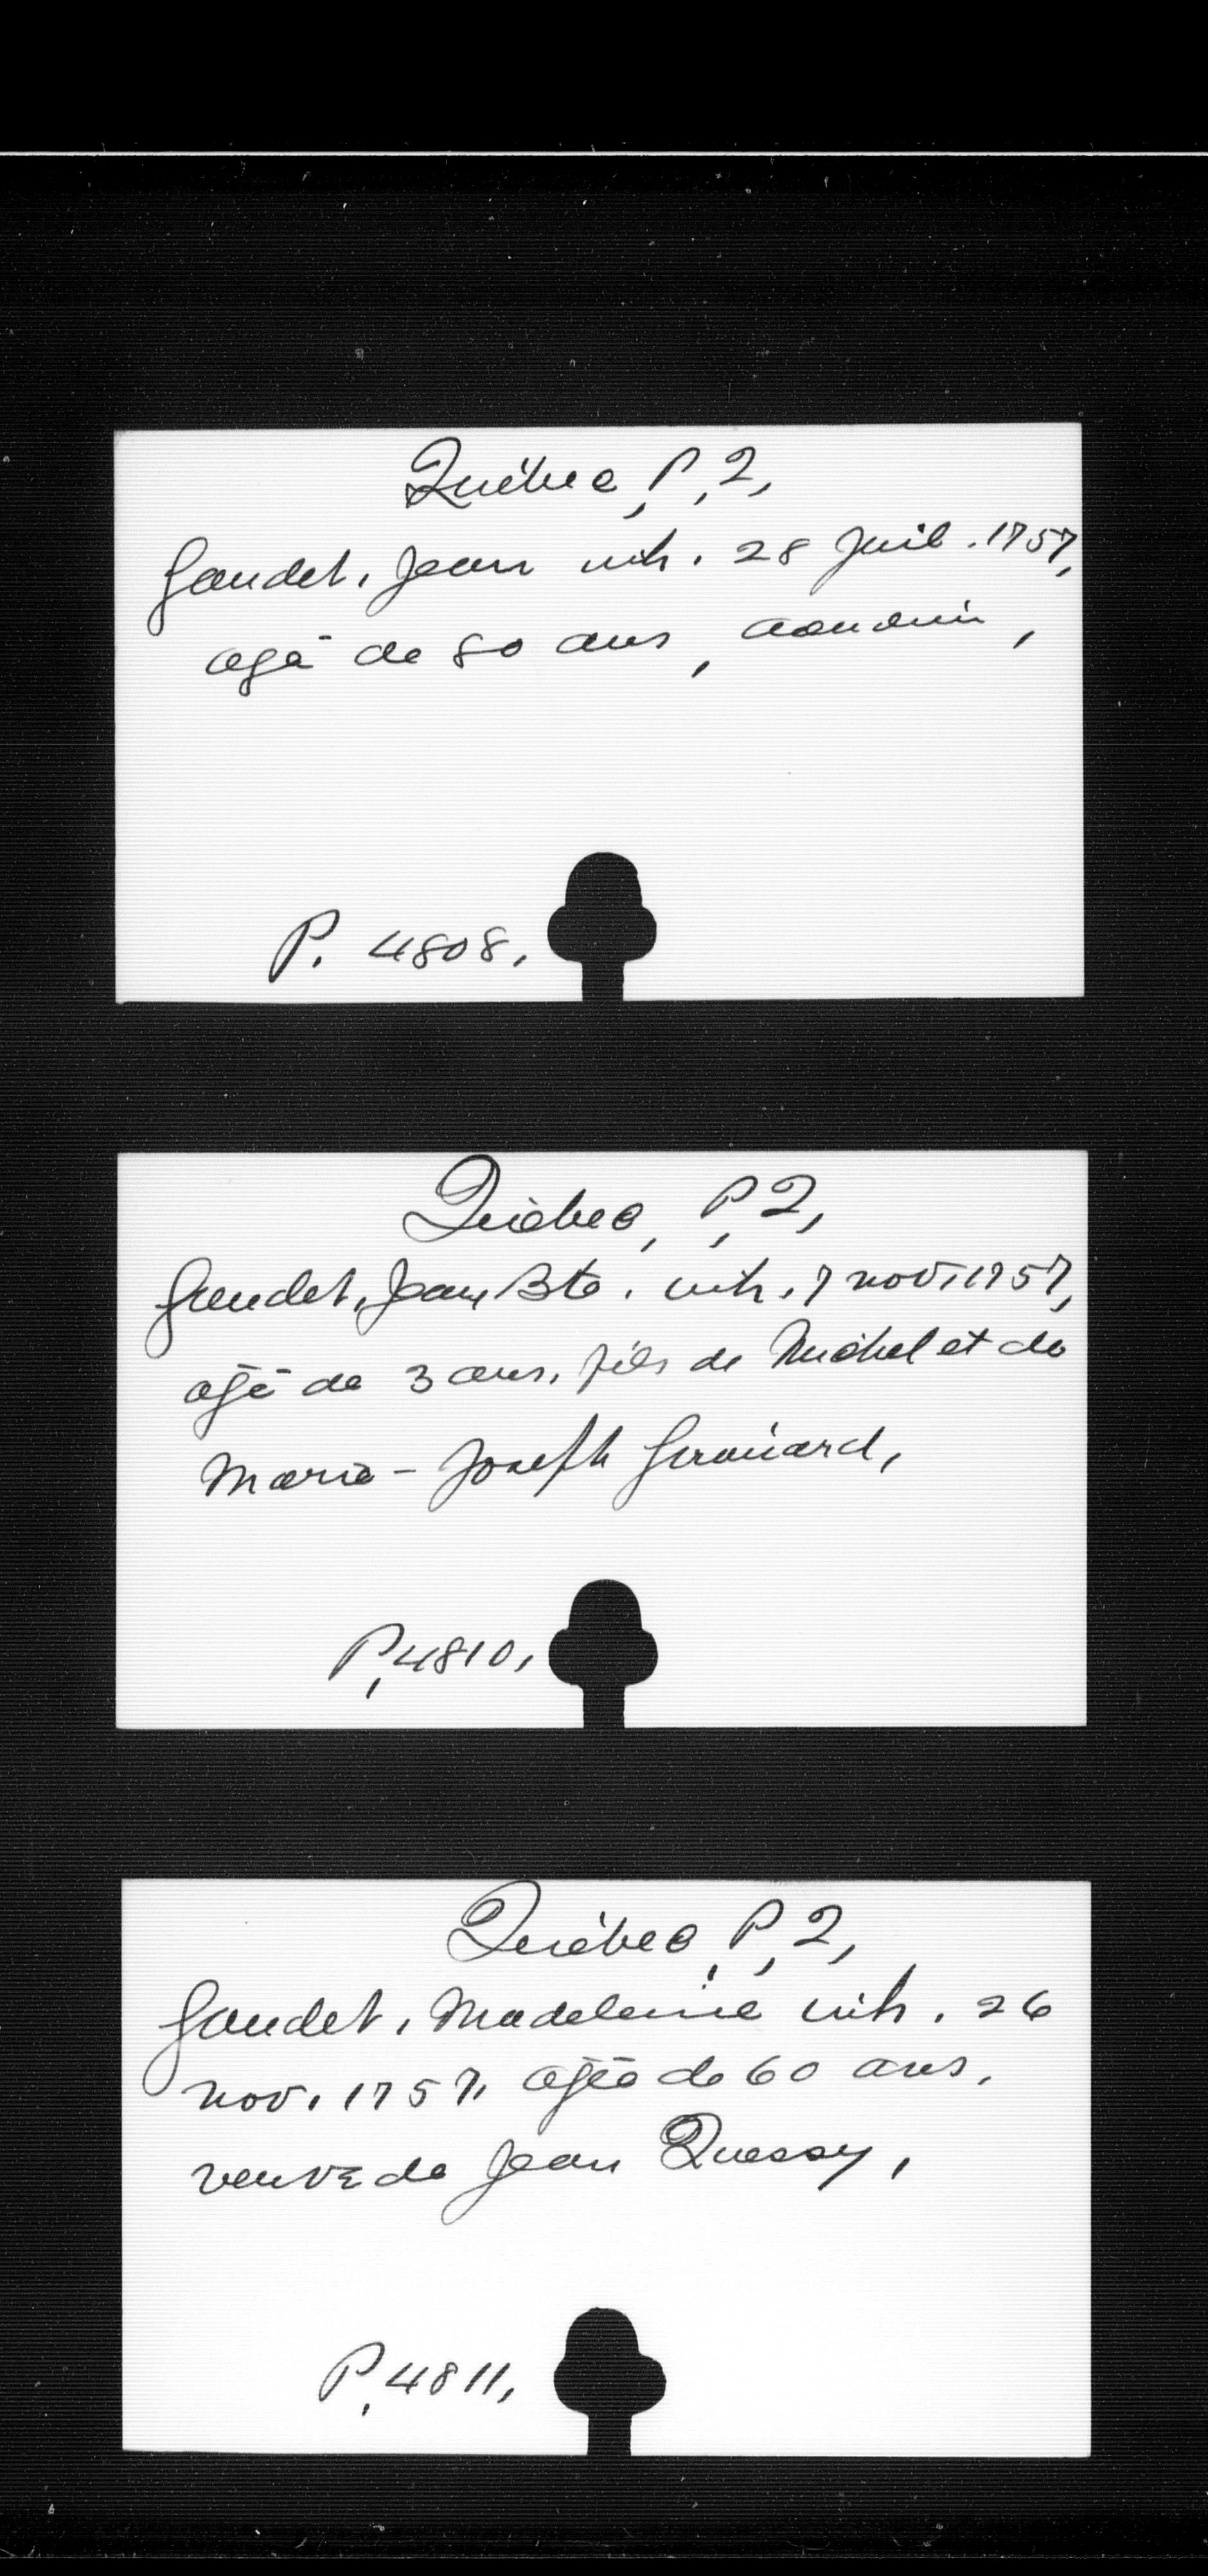 Québec, P, Q,
Gaudet, Jean inh. 28 Juil. 1757,
agé de 80 ans, acadien,
P. 4808.
Québec, P, Q,
Gaudet, Jean Bte. inh. 7 nov. 1757,
agé de 3 ans, fils de Michel et de
Marie-Joseph Girouard,
P, 4810,
Québec, P, Q,
Gaudet, Madeleine inh. 26
nov. 1757, agée de 60 ans,
veuve de Jean Quessy,
P, 4811,